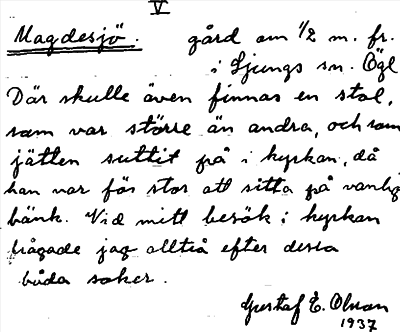 V
Magdesjö. gård om 1/2 m. fr.
i Ljungs sn. Ögl
Där skulle även finnas en stol,
som var större än andra, och som
jätten suttit på i kyrkan, då
han var för stor att sitta på vanlig
bänk. Vid mitt besök i kyrkan
frågade jag alltså efter dessa
båda saker.
Gustaf E. Olsson
1937